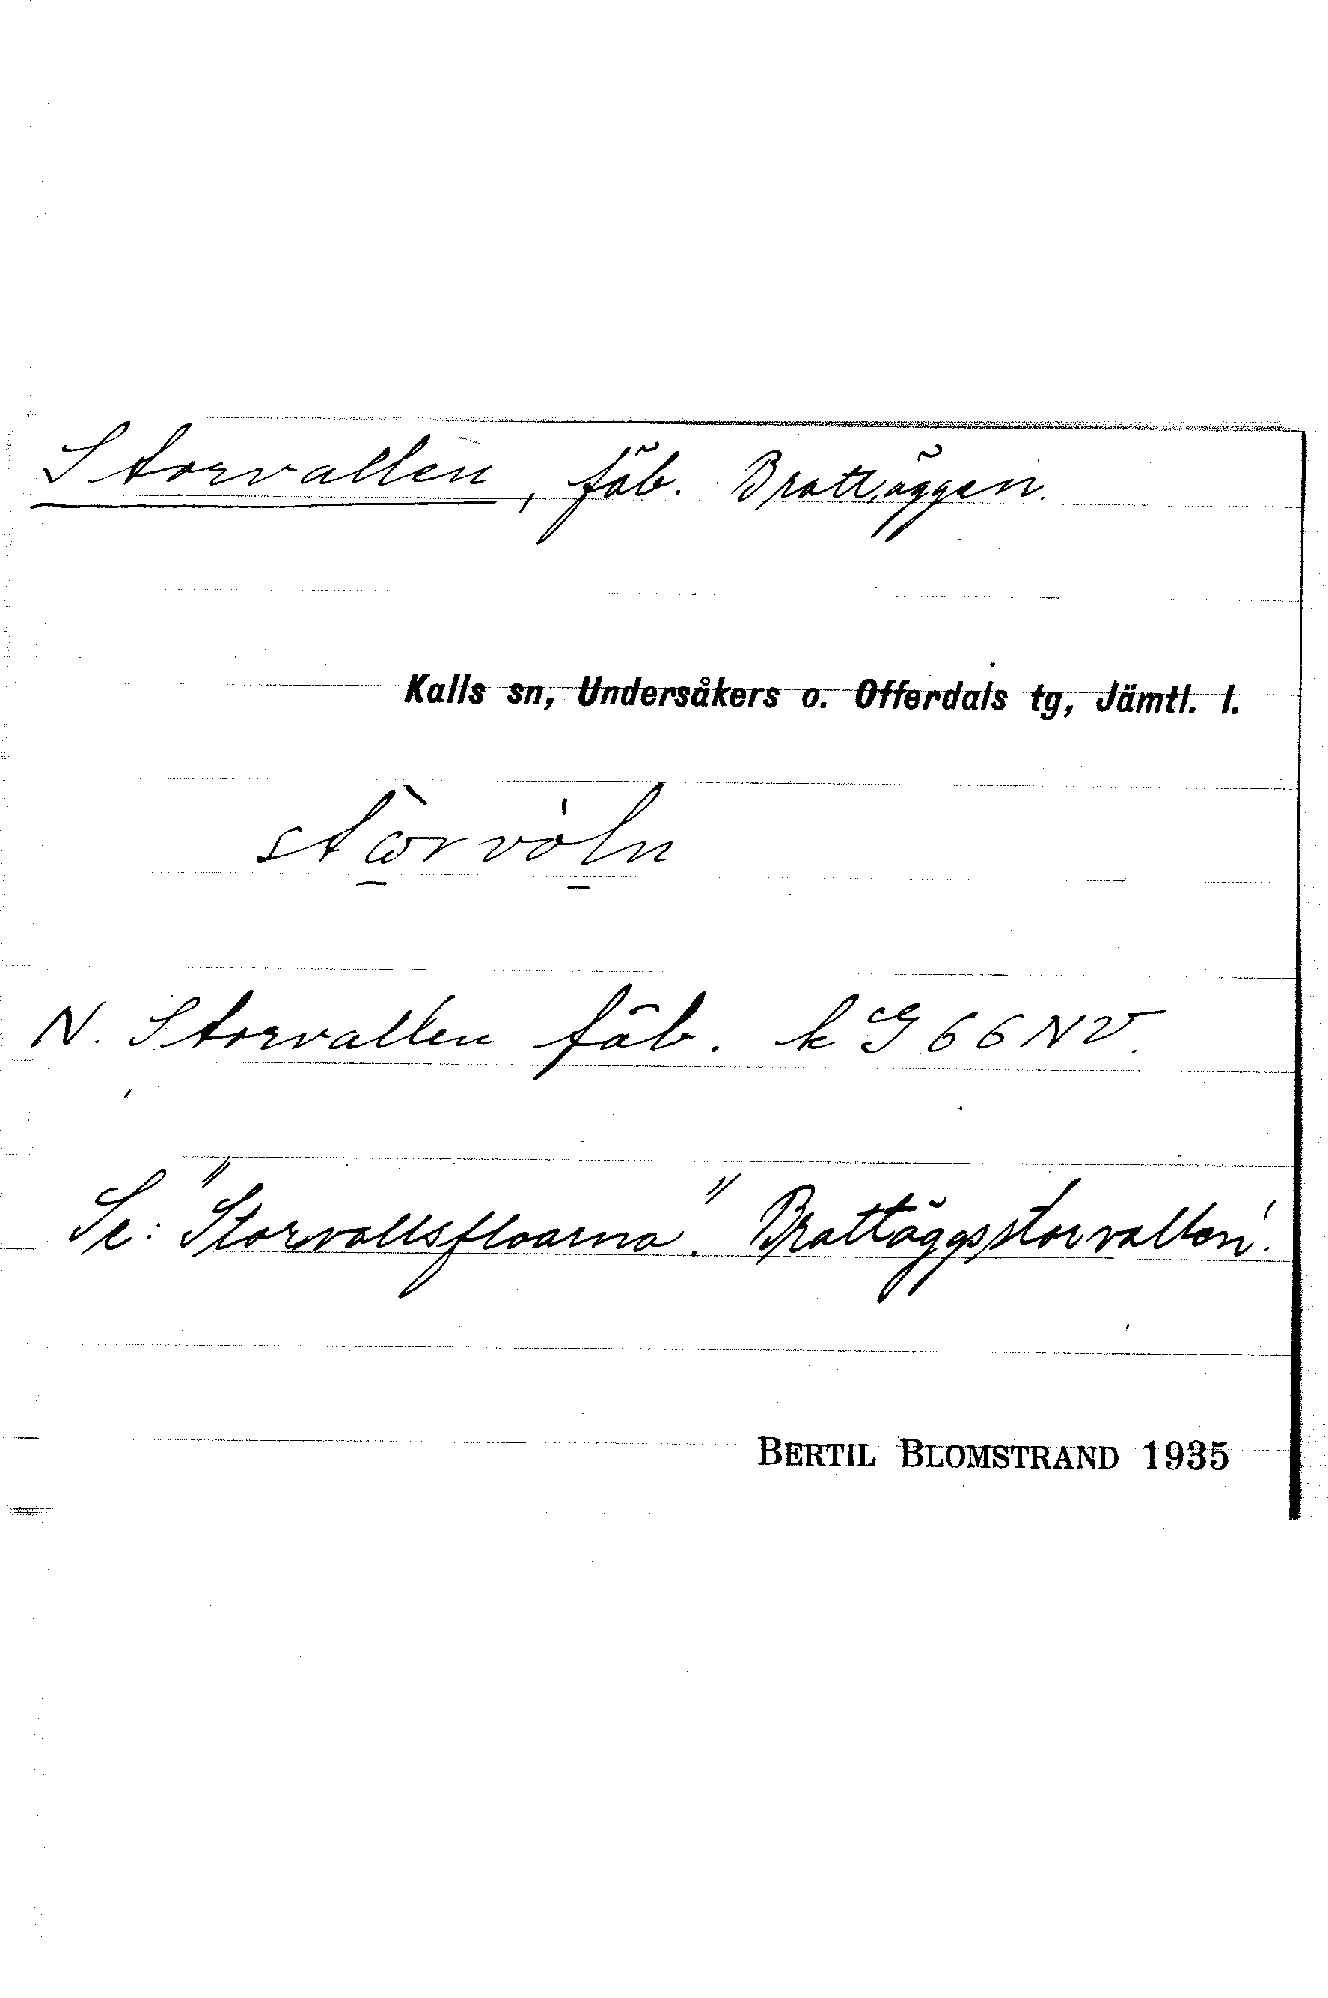 Storvallen, fäb. Brattäggen.
Kalls sn, Undersåkers o. Offerdals tg, Jämtl. l.
N. Storvallen fäb. k G 66 NV.
Se: "Storvallsfloarna". "Brattäggsstorvallen".
BERTIL BLOMSTRAND 1935